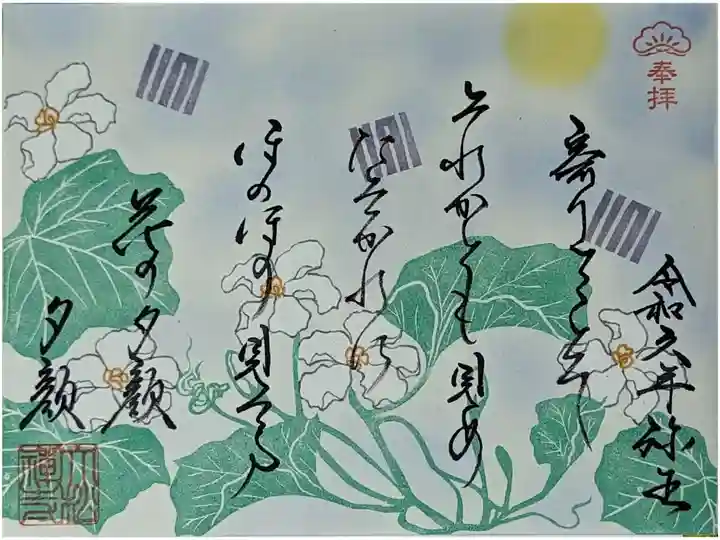 奉拝
令和六年弥生
寄りてこそ
それかとも見め
たそかれに
ほのほの見つる
花の夕顔
夕顔
小松神社